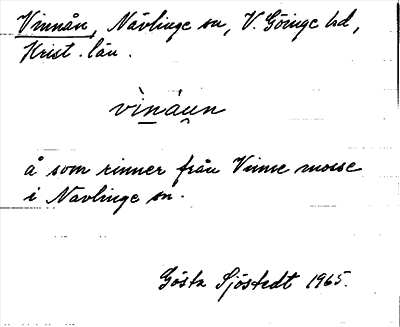 Vinnån, Nävlinge sn, V. Göinge hd,
Krist. län.
vìnáu̯n
å som rinner från Vinne mosse
i Navlinge sn.
Gösta Sjöstedt 1965.